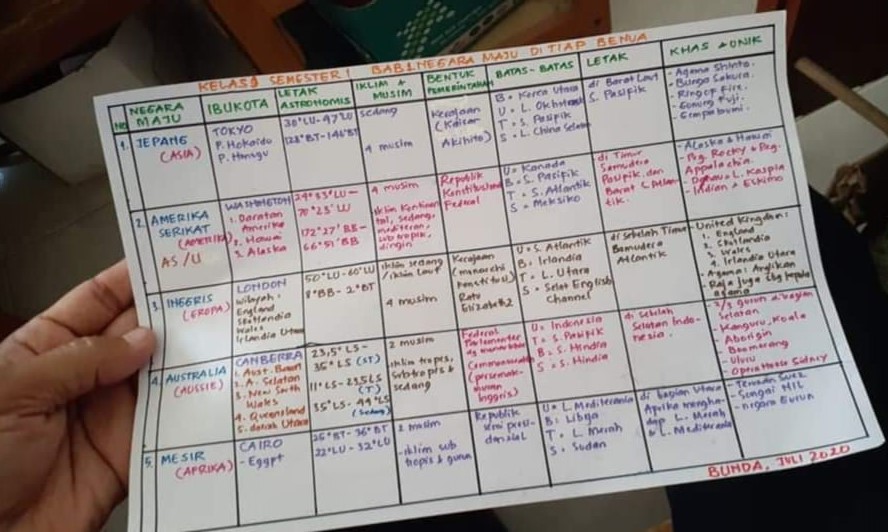 KELAS 9 SEMESTER 1 BAB 1 NEGARA MAJU DI TIAP BENUA
NO
NEGARA MAJU
IBUKOTA
LETAK ASTRONOMIS
IKLIM & MUSIM
BENTUK PEMERINTAHAN
BATAS-BATAS
LETAK
KHAS & UNIK
1.
JEPANG
(ASIA)
TOKYO
P. Hokaido
P. Honsyu
30°LU-47°LU
128°BT-146°BT
sedang
4 musim
Kerajaan
(Kaisar
Akihito)
B = Korea Utara
U = L. Okhotsk
T = S. Pasifik
S = L. China Selatan
di Barat Laut
S. Pasifik
- Agama Shinto.
- Bunga Sakura.
- Ring of Fire.
- Gunung Fuji.
- Gempa bumi.
2.
AMERIKA
SERIKAT
(AMERIKA)
AS/U
WASHINGTON
1. Daratan
Amerika
2. Hawai
3. Alaska
24°33'LU-
70°23'LU
172°27'BB-
66°51'BB
4 musim
iklim Kontinen
tal, sedang,
mediteran,
subtropik,
dingin
Republik
Konstitusional
Federal
U = Kanada
B = S. Pasifik
T = S. Atlantik
S = Meksiko
di Timur
Samudera
Pasifik dan
Barat S. Atlan-
tik.
- Alaska & Hawai
- Peg. Rocky & Peg.
Appalachia.
- Indian & Eskimo
3.
INGGRIS
(EROPA)
LONDON
wilayah:
England
Skotlandia
Wales
Irlandia Utara
50°LU-60°LU
8°BB-2°BT
iklim sedang
/iklim Laut
4 musim
Kerajaan
(monarchi
Ratu
Elizabeth 2
U = S. Atlantik
B = Irlandia
T = L. Utara
S = Selat English
Channel
di sebelah Timur
Samudera
Atlantik
- United Kingdom:
1. England
2. Skotlandia
3. Wales
4. Irlandia Utara
- Agama: Anglikan
- Raja juga sbg kepala
agama
4.
AUSTRALIA
(AUSSIE)
CANBERRA
1. Aust. Barat
2. A. Selatan
3. New South
Wales
4. Queensland
5. daerah Utara
23,5°LS-
35°LS (ST)
11°LS-23,5LS
(T)
35°LS-44°LS
(Sedang)
2 musim
iklim tropis,
subtropis &
sedang
Federal
Parlementer
Commonwealth
(persemak-
muran
Inggris)
U = Indonesia
T = S. Pasifik
B = S. Hindia
S = S. Hindia
di sebelah
Selatan Indo-
nesia.
- 2/3 gurun di bagian
Selatan
- Kanguru, Koala
- Aborigin
- Boomerang
- Uluru
- Opera House Sidney
5.
MESIR
(AFRIKA)
CAIRO
- Egypt
25°BT-36°BT
22°LU-32°LU
2 musim
- iklim sub
tropis & gurun
Republik
semi presi-
densial
U = L. Mediterania
B = Libya
T = L. Merah
S = Sudan
di bagian Utara
Afrika mengha-
dap L. Merah
& L. Mediterania
- Terusan Suez
- Sungai Nil
- negara Gurun
BUNDA, JULI 2020